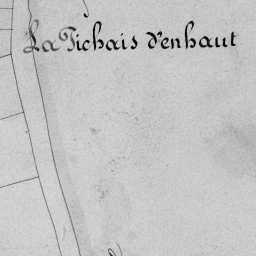 La Tichais d'enhaut